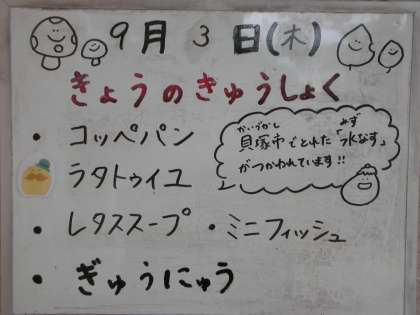 9月3日(木)
きょうのきゅうしょく
・コッペパン
ラタトゥイユ
かいづかし みず
貝塚市でとれた「水なす」
がつかわれています!!
・レタススープ ・ミニフィッシュ
・ぎゅうにゅう